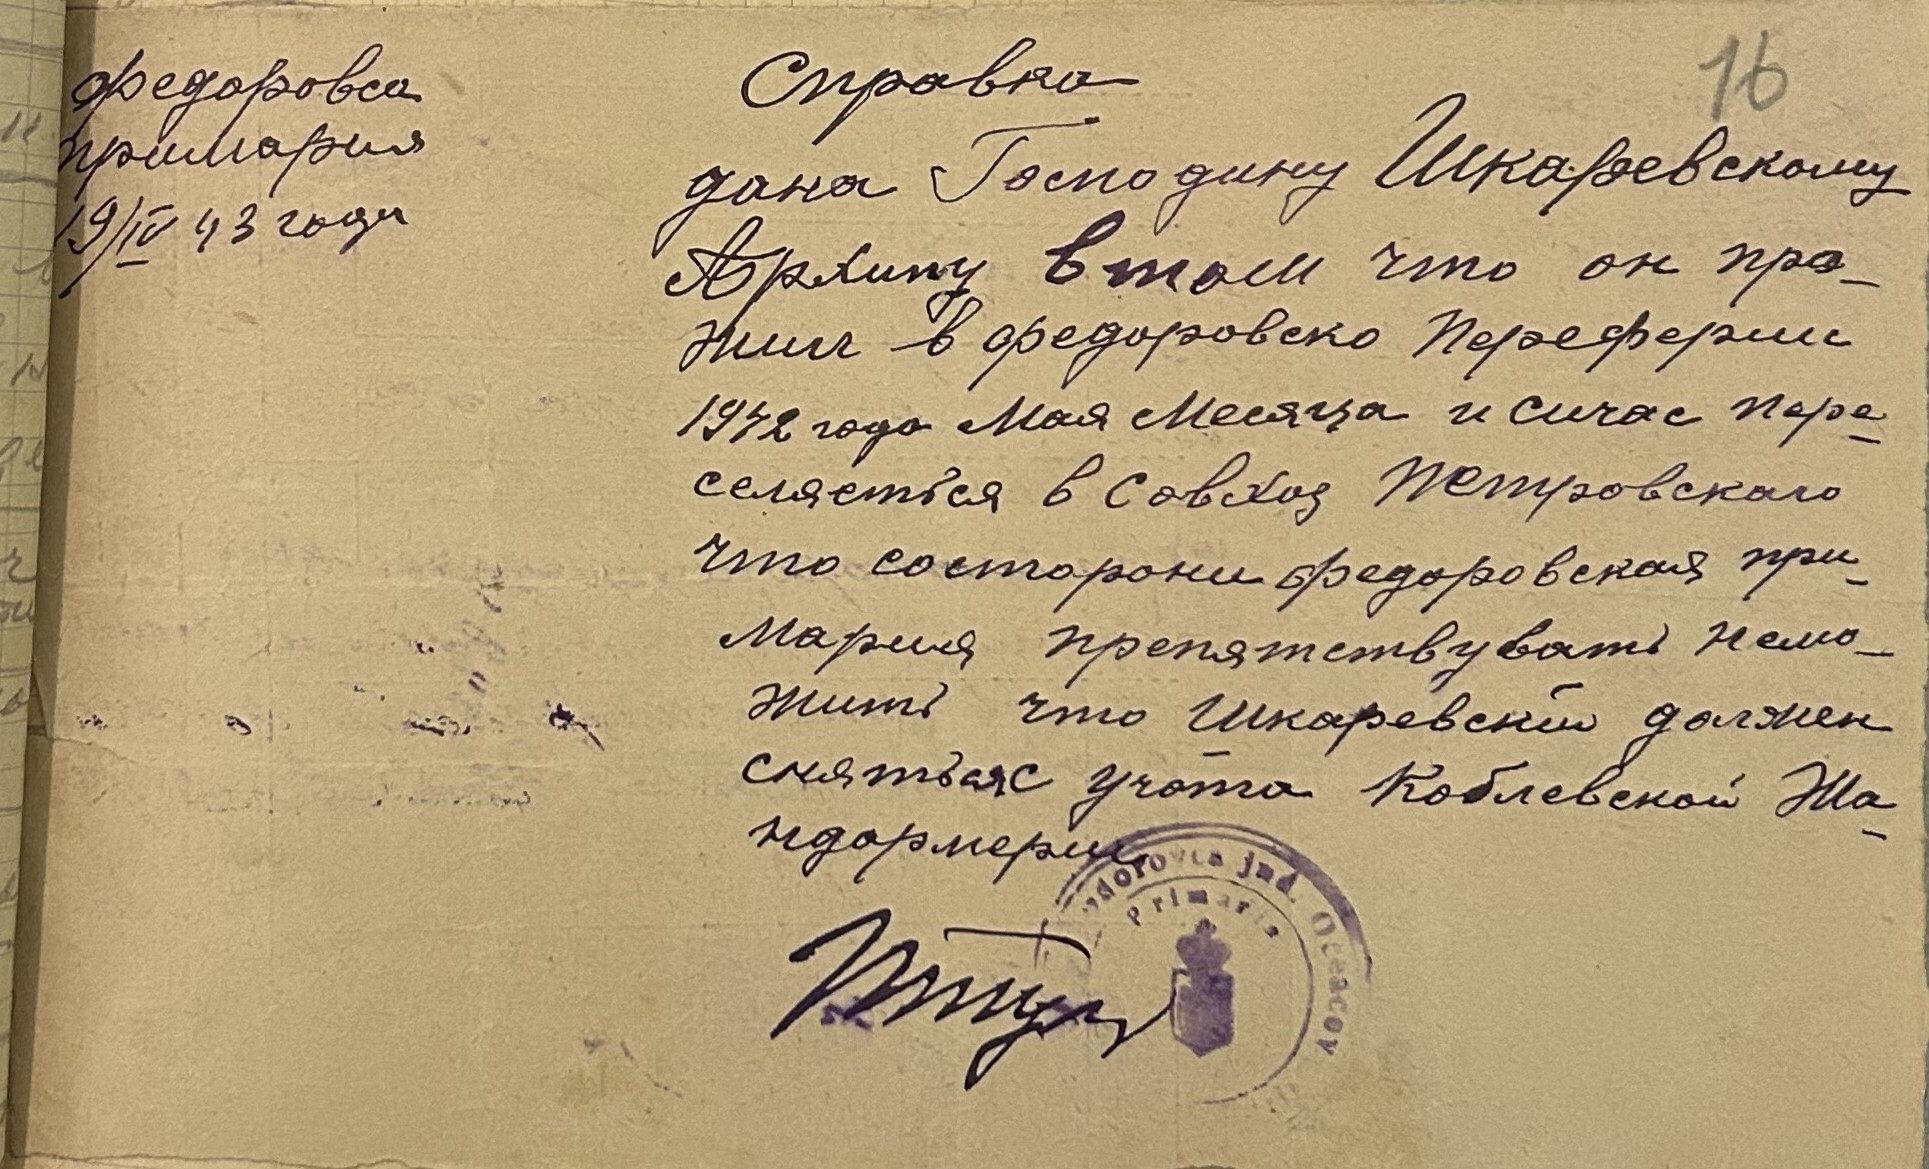 16
Федоровса
примария
19/IV 43 года
Справка
дана Господину Шкаревскому
Архипу в том что он про-
жил в федоровско Переферии
1942 года Мая Месяца и сичас пере-
селяетьсея в Совхоз Петровскаго
что состорони федоровская при-
мария препятствувать немо-
жить что Шкаревский должен
снятьсяс учота Коблевской Жа-
ндармерии
Primaria
jud. Oceacov